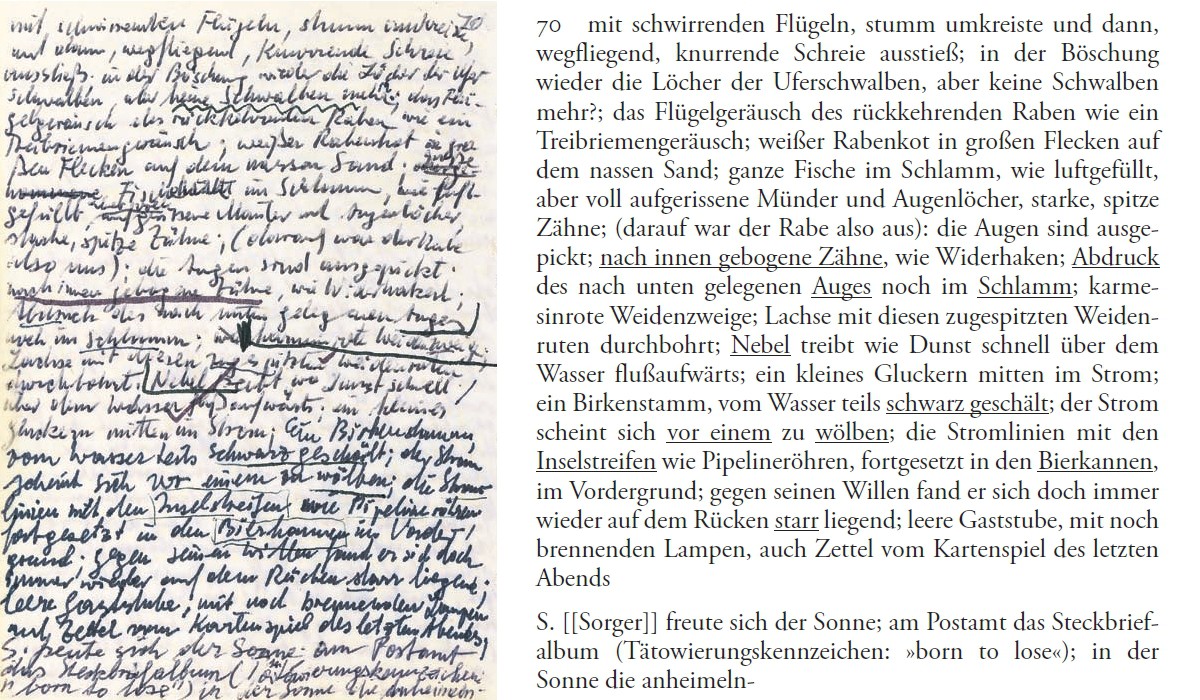 mit schwirrenden Flügeln, stumm umkreiste 70
und dann, wegfliegend, knurrende Schreie
ausstieß; in der Böschung wieder die Löcher der Ufer
schwalben, aber keine Schwalben mehr?; das Flü-
gelgeräusch des rückkehrenden Raben wie ein
Treibriemengeräusch; weißer Rabenkot in gro-
ßen Flecken auf dem nassen Sand; ganze
Fische im Schlamm, wie luft-
gefüllt, aufgerissene Münder und Augenlöcher,
starke, spitze Zähne; (darauf war der Rabe
also aus): die Augen sind ausgepickt;
nach innen gebogene Zähne, wie Widerhaken;
Abdruck des nach unten gelegenen Auges
noch im Schlamm; rote Weidenzweige
Lachse mit diesen zugespitzten Weidenruten
durchbohrt; Nebel treibt wie Dunst schnell
über dem Wasser flußaufwärts; ein kleines
Gluckern mitten im Strom; Ein Birkenstamm,
vom Wasser teils schwarz geschält; der Strom
scheint sich vor einem zu wölben; die Strom-
linien mit den Inselstreifen wie Pipelineröhren
fortgesetzt in den Bierkannen, im Vorder-
grund; gegen seinen Willen fand er sich doch
immer wieder auf dem Rücken starr liegend;
leere Gaststube, mit noch brennenden Lampen,
auch Zettel vom Kartenspiel des letzten Abends
S. freute sich der Sonne; am Postamt
das Steckbriefalbum (Tätowierungskennzeichen:
»born to lose«) in der Sonne die anheimeln-
70 mit schwirrenden Flügeln, stumm umkreiste und dann,
wegfliegend, knurrende Schreie ausstieß; in der Böschung
wieder die Löcher der Uferschwalben, aber keine Schwalben
mehr?; das Flügelgeräusch des rückkehrenden Raben wie ein
Treibriemengeräusch; weißer Rabenkot in großen Flecken auf
dem nassen Sand; ganze Fische im Schlamm, wie luftgefüllt,
aber voll aufgerissene Münder und Augenlöcher, starke, spitze
Zähne; (darauf war der Rabe also aus): die Augen sind ausge-
pickt; nach innen gebogene Zähne, wie Widerhaken; Abdruck
des nach unten gelegenen Auges noch im Schlamm; karme-
sinrote Weidenzweige; Lachse mit diesen zugespitzten Weiden-
ruten durchbohrt; Nebel treibt wie Dunst schnell über dem
Wasser flußaufwärts; ein kleines Gluckern mitten im Strom;
ein Birkenstamm, vom Wasser teils schwarz geschält; der Strom
scheint sich vor einem zu wölben; die Stromlinien mit den
Inselstreifen wie Pipelineröhren, fortgesetzt in den Bierkannen,
im Vordergrund; gegen seinen Willen fand er sich doch immer
wieder auf dem Rücken starr liegend; leere Gaststube, mit noch
brennenden Lampen, auch Zettel vom Kartenspiel des letzten
Abends
S. [[Sorger]] freute sich der Sonne; am Postamt das Steckbrief-
album (Tätowierungskennzeichen: »born to lose«); in der
Sonne die anheimeln-